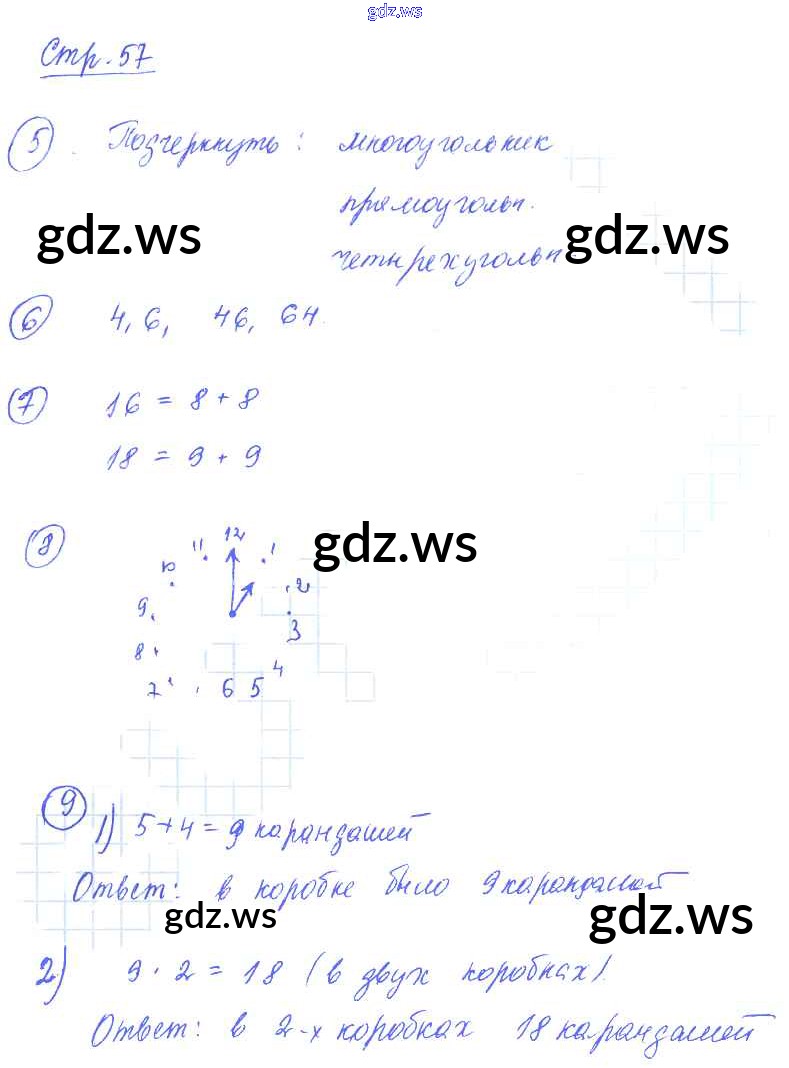 gdz.ws
Стр. 57
5. Подчеркнуть: многоугольник
прямоугольн.
gdz.ws gdz.ws
четырехугольн.
6 4, 6, 46, 64.
7 16 = 8 + 8
18 = 9 + 9
8
gdz.ws
11 12 1
10 2
9 3
8 4
7 6 5
9
1) 5+4=9 карандашей
Ответ: в коробке было 9 карандашей
gdz.ws gdz.ws
2) 9 · 2 = 18 (в двух коробках).
Ответ: в 2-х коробках 18 карандашей